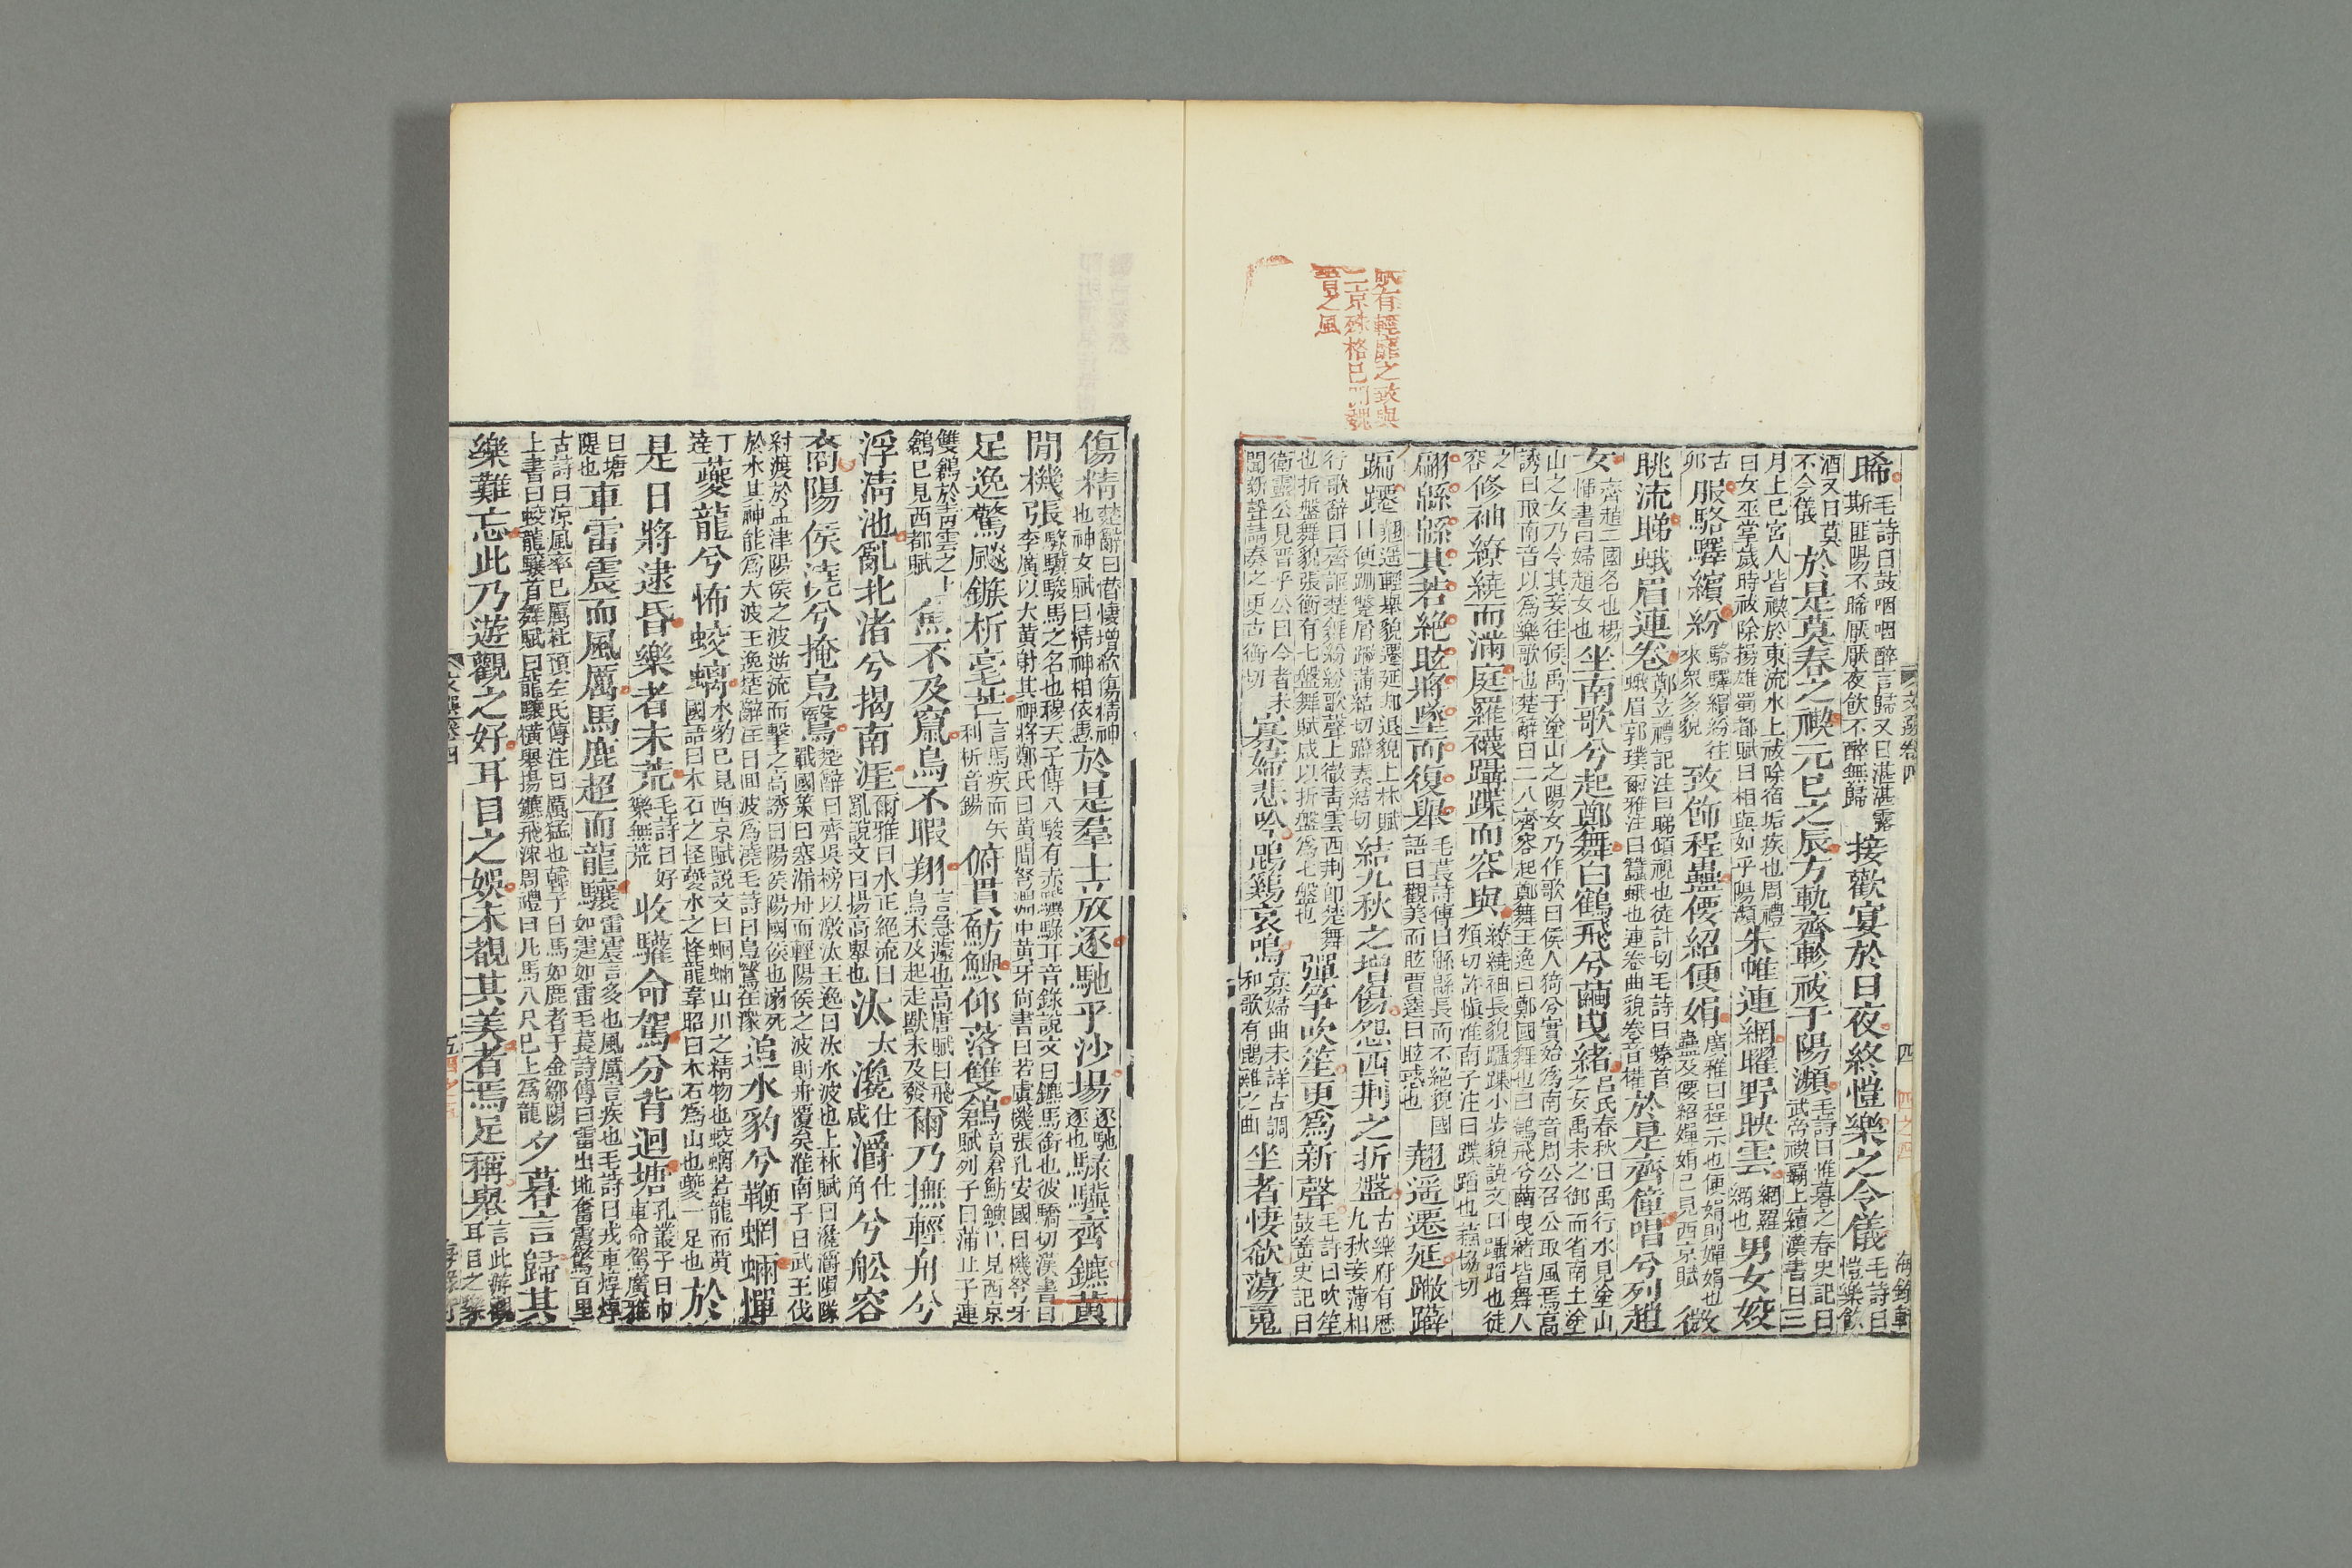 賦有輕靡之致與
二京殊格已開魏
晉之風
文選卷四
四
四之四
海錄軒
晞毛詩曰鼓咽咽醉言歸又曰湛湛露斯匪陽不晞厭厭夜飲不醉無歸接歡宴於日夜終愷樂之令儀毛詩曰愷樂飲
酒又曰莫不令儀於是莫春之禊元巳之辰方軌齊軫祓于陽瀕毛詩曰惟暮之春史記曰武帝禊霸上續漢書曰三
月上巳宮人皆禊於東流水上祓除宿垢疾也周禮曰女巫掌歲時祓除揚雄蜀都賦曰相與如乎陽瀕朱帷連網曜野映雲網羅綱也男女姣
古卯服駱驛繽紛駱驛繽紛往來眾多貌致飾程蠱偠紹便娟廣雅曰程示也便娟則嬋娟也蠱及偠紹嬋娟已見西京賦微
眺流睇蛾眉連卷鄭玄禮記注曰睇傾視也徒計切毛詩曰螓首蛾眉郭璞爾雅注曰蠶蛾也連卷曲貌卷音權於是齊僮唱兮列趙
女齊趙二國名也楊惲書曰婦趙女也坐南歌兮起鄭舞白鶴飛兮繭曳緒呂氏春秋曰禹行水見塗山之女禹未之御而省南土塗
山之女乃令其妾往候禹于塗山之陽女乃作歌曰候人猗兮實始為南音周公召公取風焉高誘曰取南音以為樂歌也楚辭曰二八齊容起鄭舞王逸曰鄭國舞也白鶴飛兮繭曳緒皆舞人
之容修袖繚繞而滿庭羅襪躡蹀而容與繚繞袖長貌躡蹀小步貌說文曰躡蹈也徒頰切許慎淮南子注曰蹀蹈也蘇協切
翩緜緜其若絕眩將墜而復舉毛萇詩傳曰緜緜長而不絕貌國語曰觀美而眩賈逵曰眩惑也翹遙遷延蹩躠
蹁躚翹遙輕舉貌遷延却退貌上林賦曰便蹁蹩屑蹩蒲結切躠素結切結九秋之增傷怨西荊之折盤古樂府有歷九秋妾薄相
行歌辭曰齊謳楚舞紛紛歌聲上徹青雲西荊即楚舞也折盤舞貌張衡有七盤舞賦咸以折盤為七盤也彈箏吹笙更為新聲毛詩曰吹笙鼓簧史記曰
衛靈公見晉平公曰今者來聞新聲請奏之更古衡切寡婦悲吟鵾雞哀鳴寡婦曲未詳古調和歌有鵾雞之曲坐者悽欷蕩䰟
傷精楚辭曰憯悽增欷傷精神也神女賦曰精神相依憑於是羣士放逐馳乎沙場逐馳逐也騄驥齊鑣黃
閒機張騄驥駿馬之名也穆天子傳八駿有赤驥騄耳音錄說文曰鑣馬銜也彼驕切漢書曰李廣以大黃射其裨將鄭氏曰黃間弩淵中黃牙尚書曰若虞機張孔安國曰機弩牙
足逸驚飇鏃析毫芒言馬疾而矢利析音錫俯貫魴鱮仰落雙鶬音倉魴鱮已見西京賦列子曰蒲且子連
雙鶬於青雲之上鶬已見西都賦魚不及竄鳥不暇翔言急遽也高唐賦曰飛鳥未及起走獸未及發爾乃撫輕舟兮
浮清池亂北渚兮揭南涯爾雅曰水正絕流曰亂說文曰揚高舉也汰太瀺仕咸灂仕角兮舩容
裔陽侯澆兮掩鳧鷖楚辭曰齊吳榜以激汰王逸曰汰水波也上林賦曰瀺灂隕隊戰國策曰塞漏舟而輕陽侯之波則舟覆矣淮南子曰武王伐
紂渡於孟津陽侯之波逆流而擊之高誘曰陽侯陽國侯也溺死於水其神能為大波王逸楚辭注曰回波為澆毛詩曰鳧鷖在潨追水豹兮鞭蝄蜽憚
丁達夔龍兮怖蛟螭水豹已見西京賦說文曰蝄蜽山川之精物也蛟螭若龍而黃國語曰木石之怪夔水之怪龍韋昭曰木石為山也夔一足也於
是日將逮昏樂者未荒毛詩曰好樂無荒收驩命駕分背迴塘孔叢子曰巾車命駕廣雅
曰塘隄也車雷震而風厲馬鹿超而龍驤雷震言多也風厲言疾也毛詩曰戎車焞焞如霆如雷毛萇詩傳曰雷出地奮震驚百里
古詩曰涼風率已厲杜預左氏傳注曰厲猛也韓子曰馬如鹿者千金鄒陽上書曰蛟龍驤首舞賦曰龍驤橫舉揚鑣飛沫周禮曰凡馬八尺已上為龍夕暮言歸其
樂難忘此乃遊觀之好耳目之娛未覩其美者焉足稱舉言此游觀耳目之樂
文選卷四
五